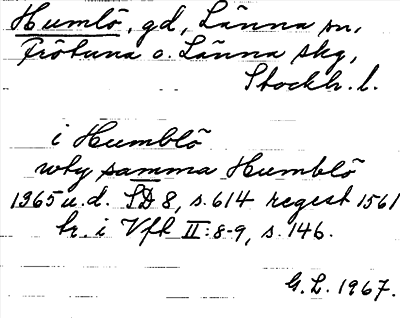 Humlö, gd, Länna sn,
Frötuna o. Länna skg,
Stockh. l.
i Humblö
wty samma Humblö
1365 u.d. SD 8, s. 614 regest 1561
tr. i Vfk II:8-9, s. 146.
G.L. 1967.